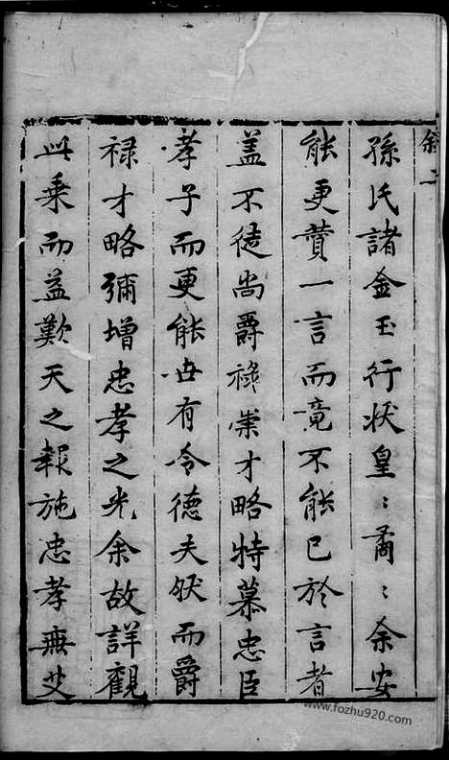 叙二
孫氏諸金玉行状皇〻矞〻余安
能更賛一言而竟不能已於言者
盖不徒尚爵禄崇才略特慕忠臣
孝子而更能世有令德夫然而爵
禄才略彌增忠孝之光余故詳觀
此乗而益歎天之報施忠孝無艾
www.fozhu920.com